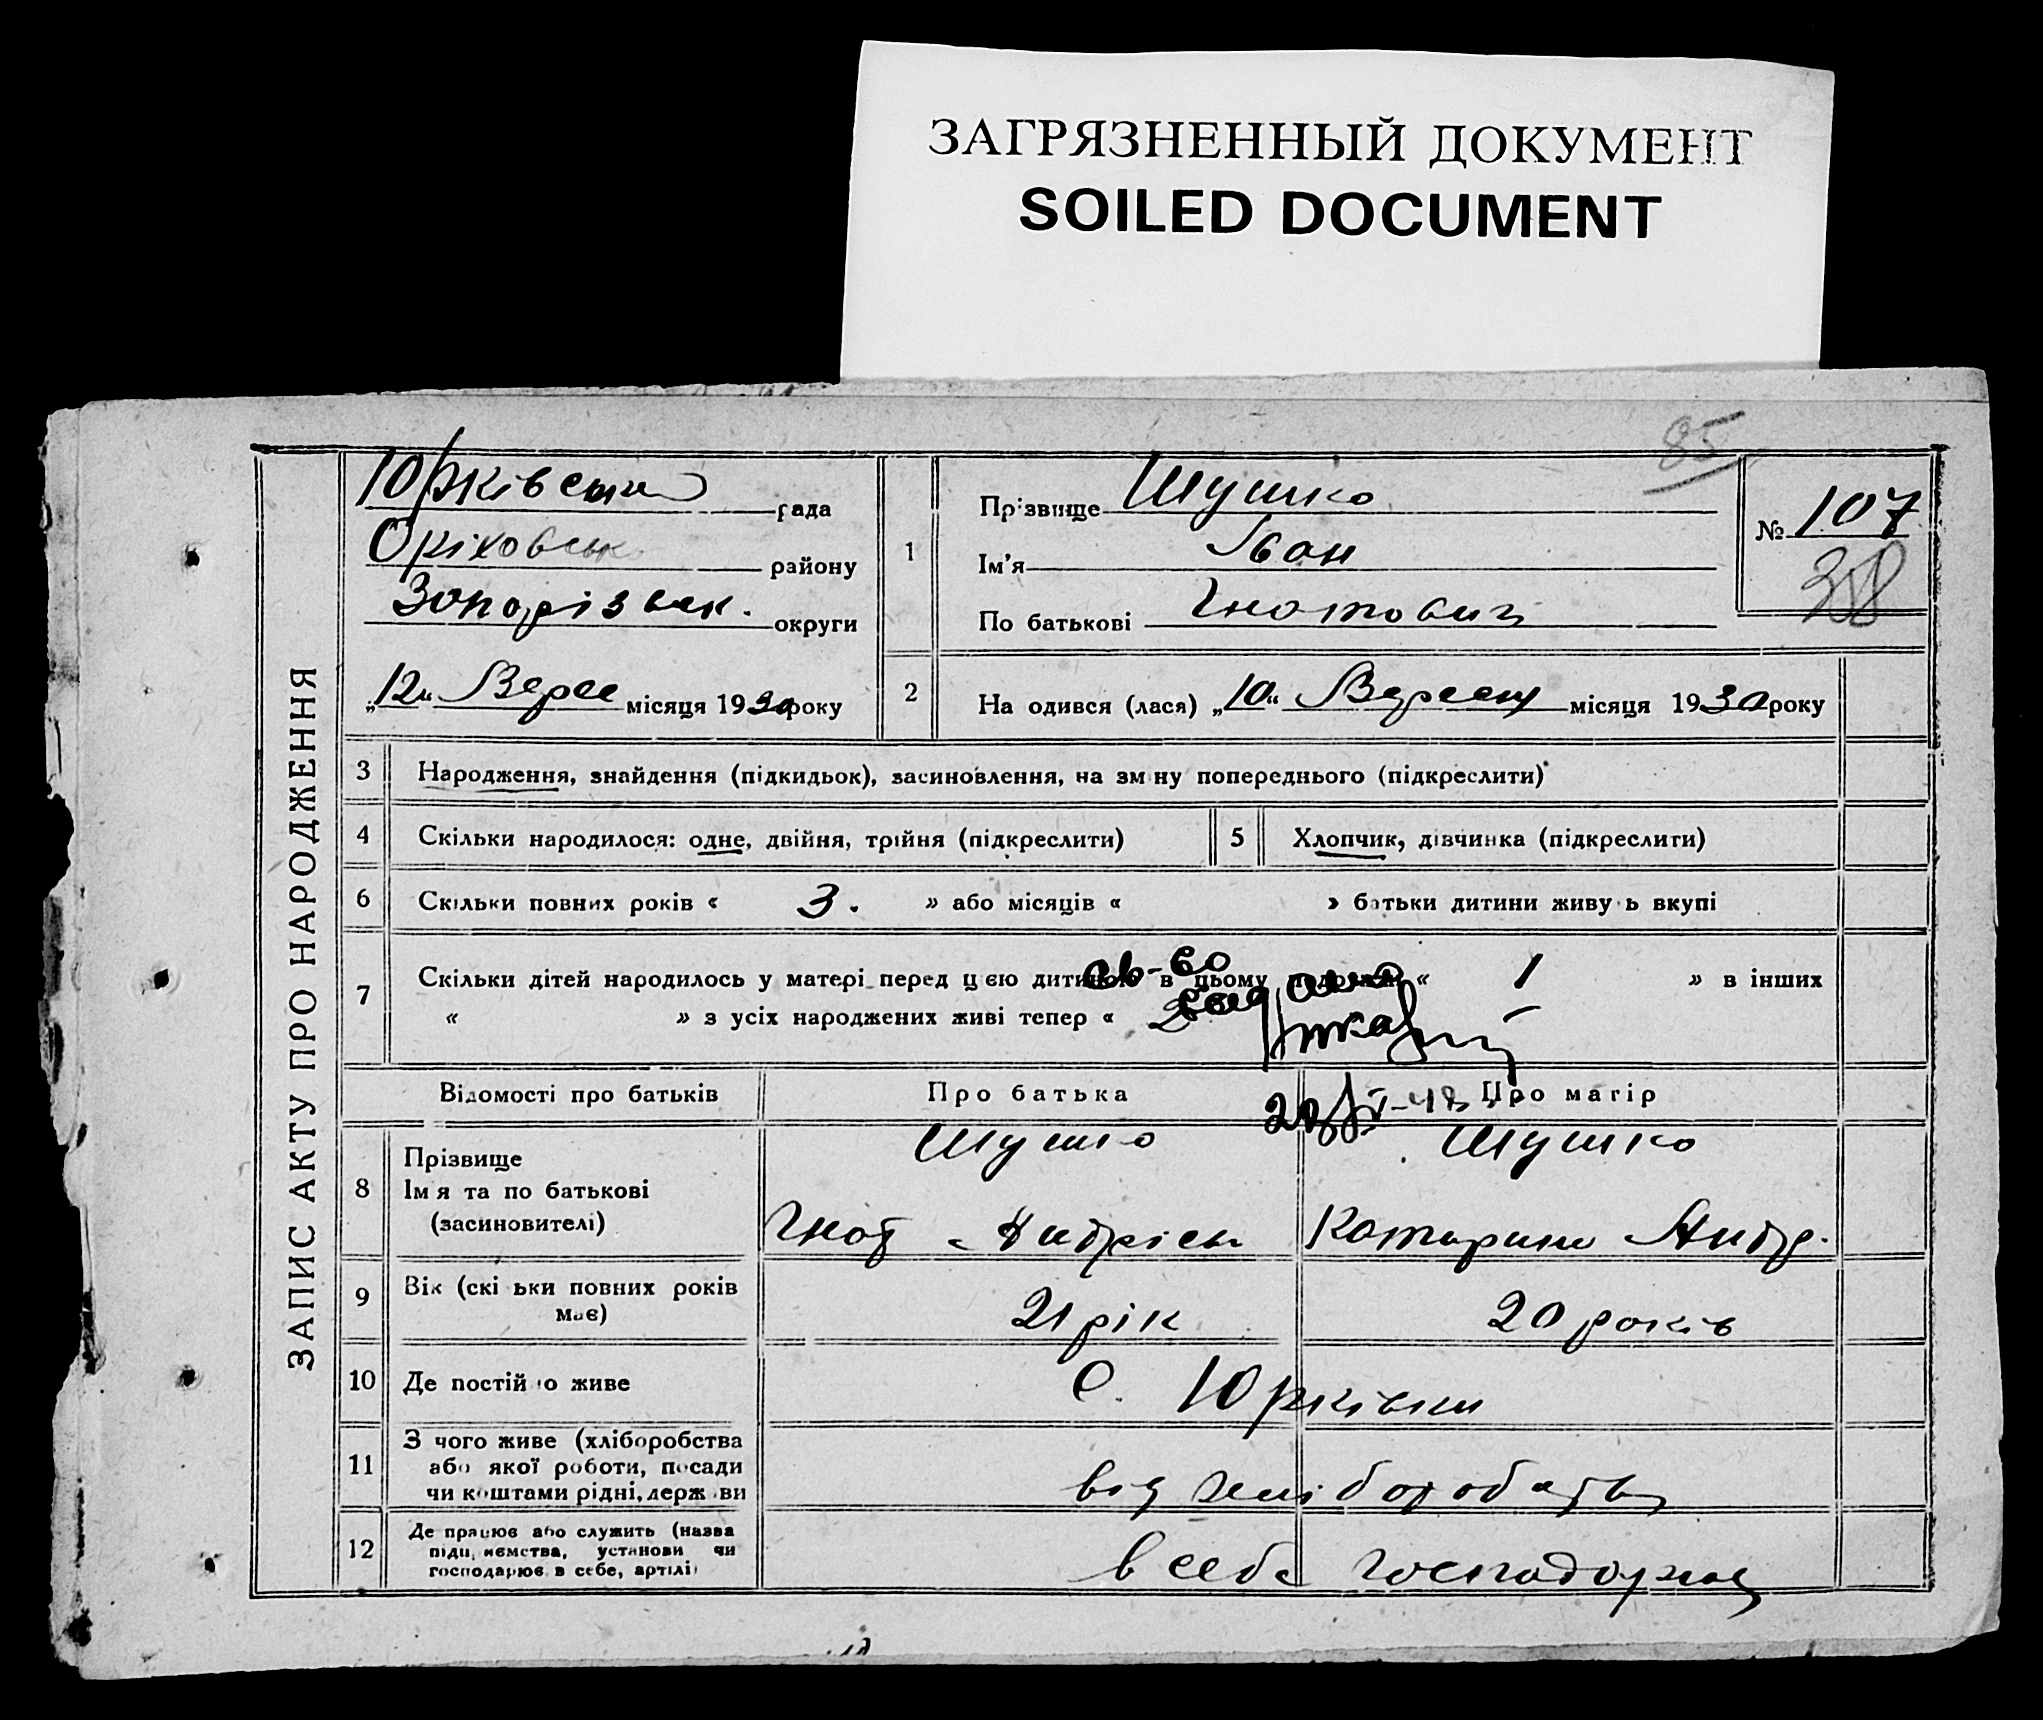 ЗАГРЯЗНЕННЫЙ ДОКУМЕНТ
SOILED DOCUMENT
85
ЗАПИС АКТУ ПРО НАРОДЖЕННЯ
Юрківська рада
Оріховськ району
Запорізьк. округи
„12“ Верес місяця 1930 року
1
Прізвище Шушко
Ім'я Іван
По батькові Гнатович
№ 107
38
2 На одився (лася) „10“ Вересня місяця 1930 року
3 Народження, знайдення (підкидьок), засиновлення, на зміну попереднього (підкреслити)
4 Скільки народилося: одне, двійня, трійня (підкреслити)
5 Хлопчик, дівчинка (підкреслити)
6 Скільки повних років « 3. » або місяців « » батьки дитини живуть вкупі
7 Скільки дітей народилось у матері перед цією дитиною в цьому подружжі « 1 » в інших
« » з усіх народжених живі тепер «
Св-во
Відомості про батьків
Про батька
Про матір
8 Прізвище
Ім'я та по батькові
(засиновителі)
Шушко
Гнат Андрієв
Шушко
Катерина Андр.
9 Вік (скільки повних років
має)
21 рік
20 років
10 Де постійно живе
С. Юрківки
11 З чого живе (хліборобства
або якої роботи, посади
чи коштами рідні, держави
від хліборобства
12 Де працює або служить (назва
підприємства, установи чи
господарює в себе, артілі)
в себе господарює